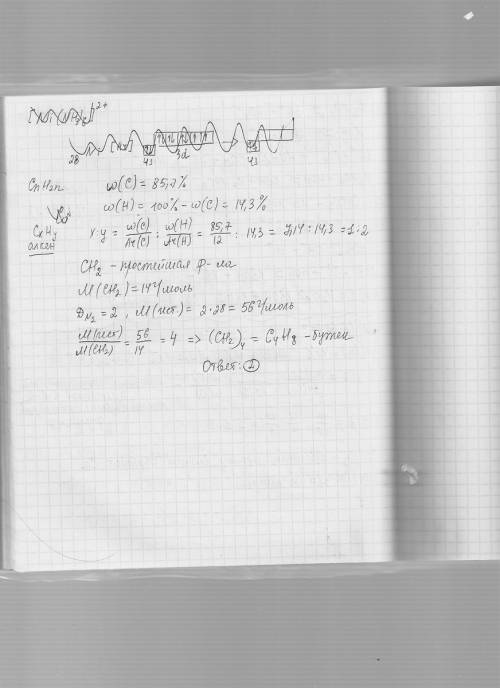 CnH2n
ω(C) = 85,7%
ω(H) = 100% - ω(C) = 14,3%
CxHy
алкен
x:y = ω(C)/Ar(C) : ω(H)/Ar(H) = 85,7/12 : 14,3 = 7,14 : 14,3 = 1:2
CH2 - простейшая ф-ла
M(CH2) = 14 г/моль
D N2 = 2, M(ист.) = 2·28 = 56 г/моль
M(ист)/M(CH2) = 56/14 = 4 => (CH2)4 = C4H8 - бутен
Ответ: